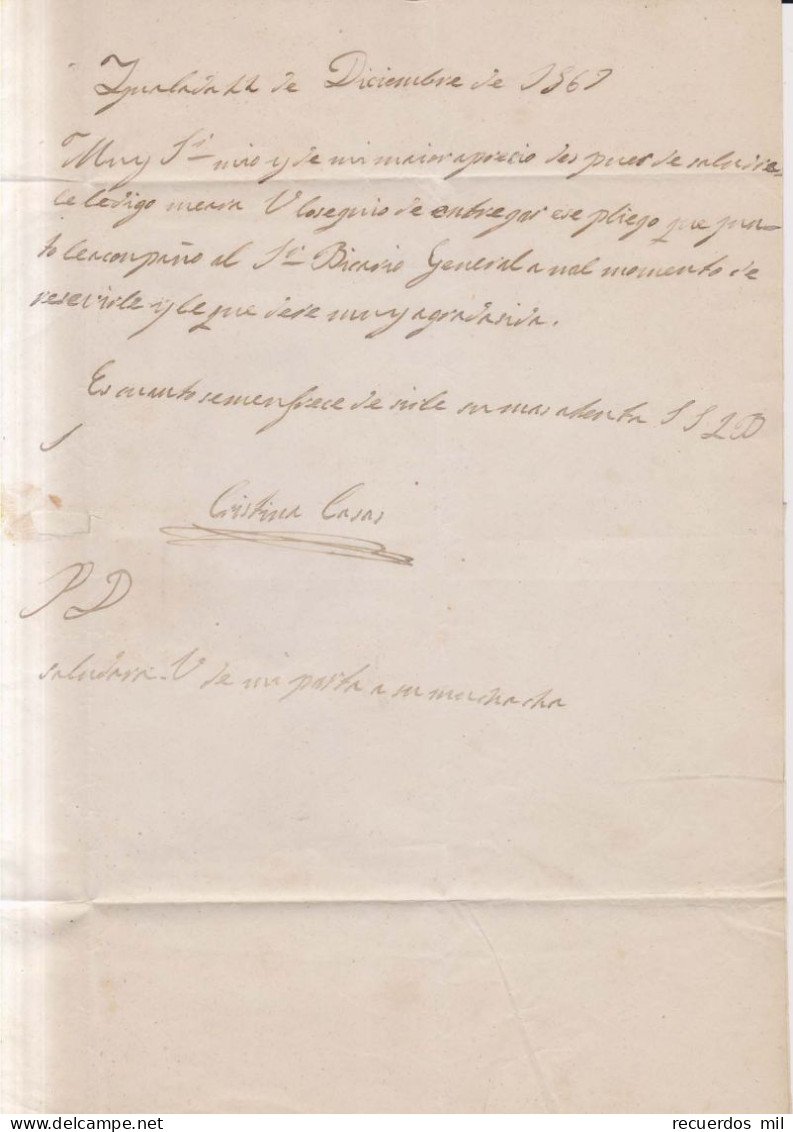 Igualada 11 de Diciembre de 1867
Muy Sr. mio y de mi maior aprecio des pues de saludar-
le le digo me aga V losequio de entregar ese pliego que jun-
to leaconpaño al Sr. Bicario General a nal momento de
resevirle y le que dare muy agradasida.
Es cuanto semenfrece de sirle su mas atenta S S Q B
Cristina Casas
P D
saludara V de mi parta a su muchacha
© www.delcampe.net
recuerdos mil